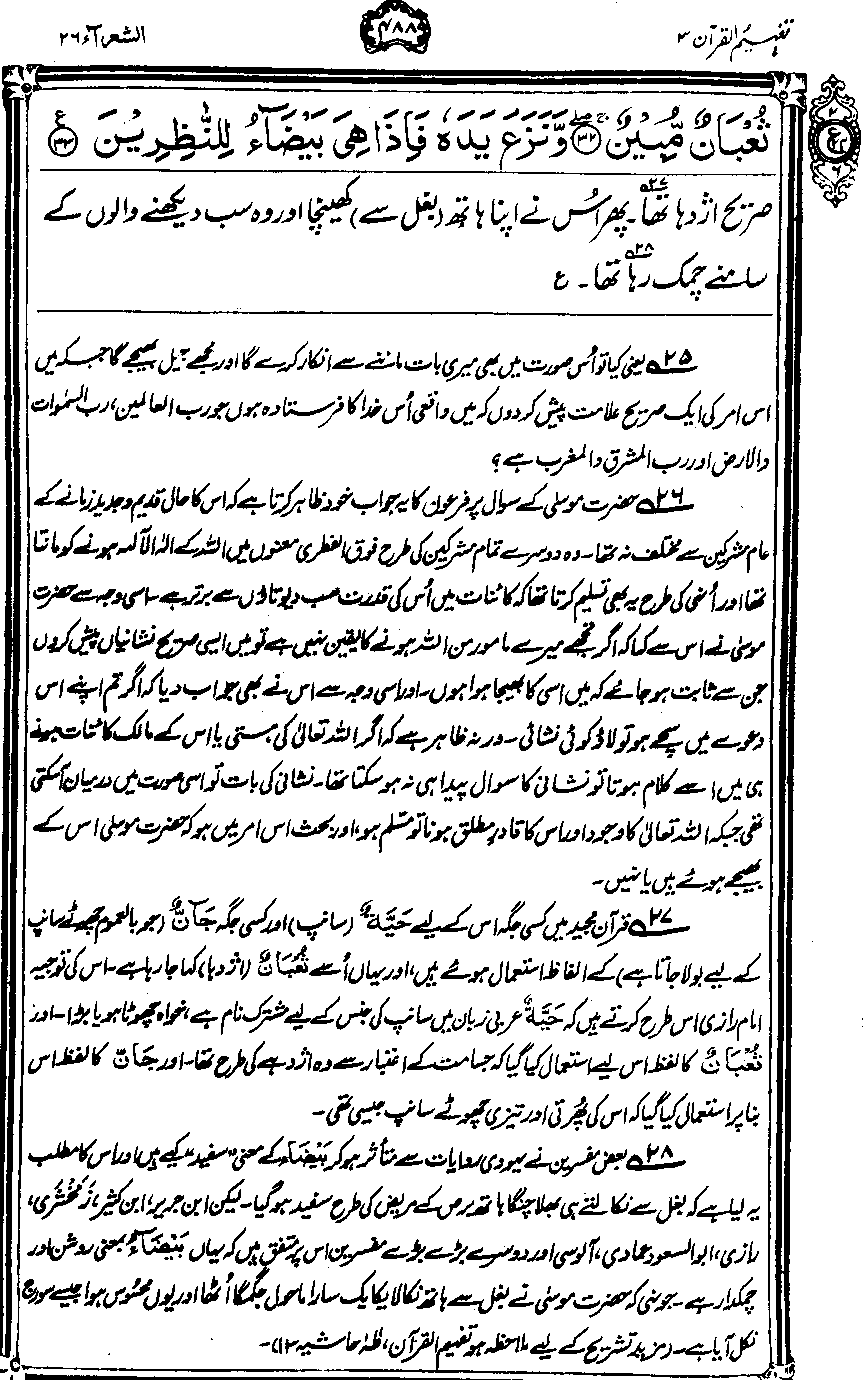 تفہیم القرآن ۳
۴۸۸
الشعرآء ۲۶
ثُعْبَانٌ مُّبِيْنٌ ۝۳۲ وَّنَزَعَ يَدَهٗ فَاِذَا هِيَ بَيْضَآءُ لِلنّٰظِرِيْنَ ۝۳۳
صریح اژدہا تھا۔۲۷ پھر اُس نے اپنا ہاتھ (بغل سے) کھینچا اور وہ سب دیکھنے والوں کے
سامنے چمک رہا تھا۔۲۸ ع
۲۵ یعنی کیا تو اُس صورت میں بھی میری بات ماننے سے انکار کرے گا اور مجھے جیل بھیجے گا جبکہ میں
اس امر کی ایک صریح علامت پیش کر دوں کہ میں واقعی اُس خدا کا فرستادہ ہوں جو رب العالمین، رب السمٰوات
والارض اور رب المشرق والمغرب ہے؟
۲۶ حضرت موسیٰ کے سوال پر فرعون کا یہ جواب خود ظاہر کرتا ہے کہ اس کا حال قدیم و جدید زمانے کے
عام مشرکین سے مختلف نہ تھا۔ وہ دوسرے تمام مشرکین کی طرح فوق الفطری معنوں میں اللہ کے الٰہ الآلہہ ہونے کو مانتا
تھا اور اُنھی کی طرح یہ بھی تسلیم کرتا تھا کہ کائنات میں اُس کی قدرت سب دیوتاؤں سے برتر ہے۔ اسی وجہ سے حضرت
موسیٰ نے اس سے کہا کہ اگر تجھے میرے مامور من اللہ ہونے کا یقین نہیں ہے تو میں ایسی صریح نشانیاں پیش کروں
جن سے ثابت ہو جائے کہ میں اسی کا بھیجا ہوا ہوں۔ اور اسی وجہ سے اس نے بھی جواب دیا کہ اگر تم اپنے اس
دعوے میں سچے ہو تو لاؤ کوئی نشانی۔ ورنہ ظاہر ہے کہ اگر اللہ تعالیٰ کی ہستی یا اس کے مالک کائنات ہونے
ہی میں اسے کلام ہوتا تو نشانی کا سوال پیدا ہی نہ ہو سکتا تھا۔ نشانی کی بات تو اسی صورت میں درمیان آسکتی
تھی جبکہ اللہ تعالیٰ کا وجود اور اس کا قادرِ مطلق ہونا تو مسلّم ہو، اور بحث اس امر میں ہو کہ حضرت موسیٰ اس کے
بھیجے ہوئے ہیں یا نہیں۔
۲۷ قرآن مجید میں کسی جگہ اس کے لیے حَيَّةٌ (سانپ) اور کسی جگہ جَآنٌّ (جو بالعموم چھوٹے سانپ
کے لیے بولا جاتا ہے) کے الفاظ استعمال ہوئے ہیں، اور یہاں اُسے ثُعْبَانٌ (اژدہا) کہا جا رہا ہے۔ اس کی توجیہ
امام رازی اس طرح کرتے ہیں کہ حَيَّةٌ عربی زبان میں سانپ کی جنس کے لیے مشترک نام ہے، خواہ چھوٹا ہو یا بڑا۔ اور
ثُعْبَانٌ کا لفظ اس لیے استعمال کیا گیا کہ جسامت کے اعتبار سے وہ اژدہے کی طرح تھا۔ اور جَانّ کا لفظ اس
بنا پر استعمال کیا گیا کہ اس کی پھُرتی اور تیزی چھوٹے سانپ جیسی تھی۔
۲۸ بعض مفسرین نے یہودی روایات سے متأثر ہو کر بَيْضَاء کے معنی ”سفید“ کیے ہیں اور اس کا مطلب
یہ لیا ہے کہ بغل سے نکالتے ہی بھلا چنگا ہاتھ برص کے مریض کی طرح سفید ہو گیا۔ لیکن ابن جریر، ابن کثیر، زَمَخْشَری،
رازی، ابوالسعود عمادی، آلوسی اور دوسرے بڑے بڑے مفسرین اس پر متفق ہیں کہ یہاں بَيْضَآءُ بمعنی روشن اور
چمکدار ہے۔ جونہی کہ حضرت موسیٰ نے بغل سے ہاتھ نکالا یکایک سارا ماحول جگمگا اُٹھا اور یوں محسوس ہوا جیسے سورج
نکل آیا ہے۔ (مزید تشریح کے لیے ملاحظہ ہو تفہیم القرآن، طٰہٰ حاشیہ ۱۳)۔